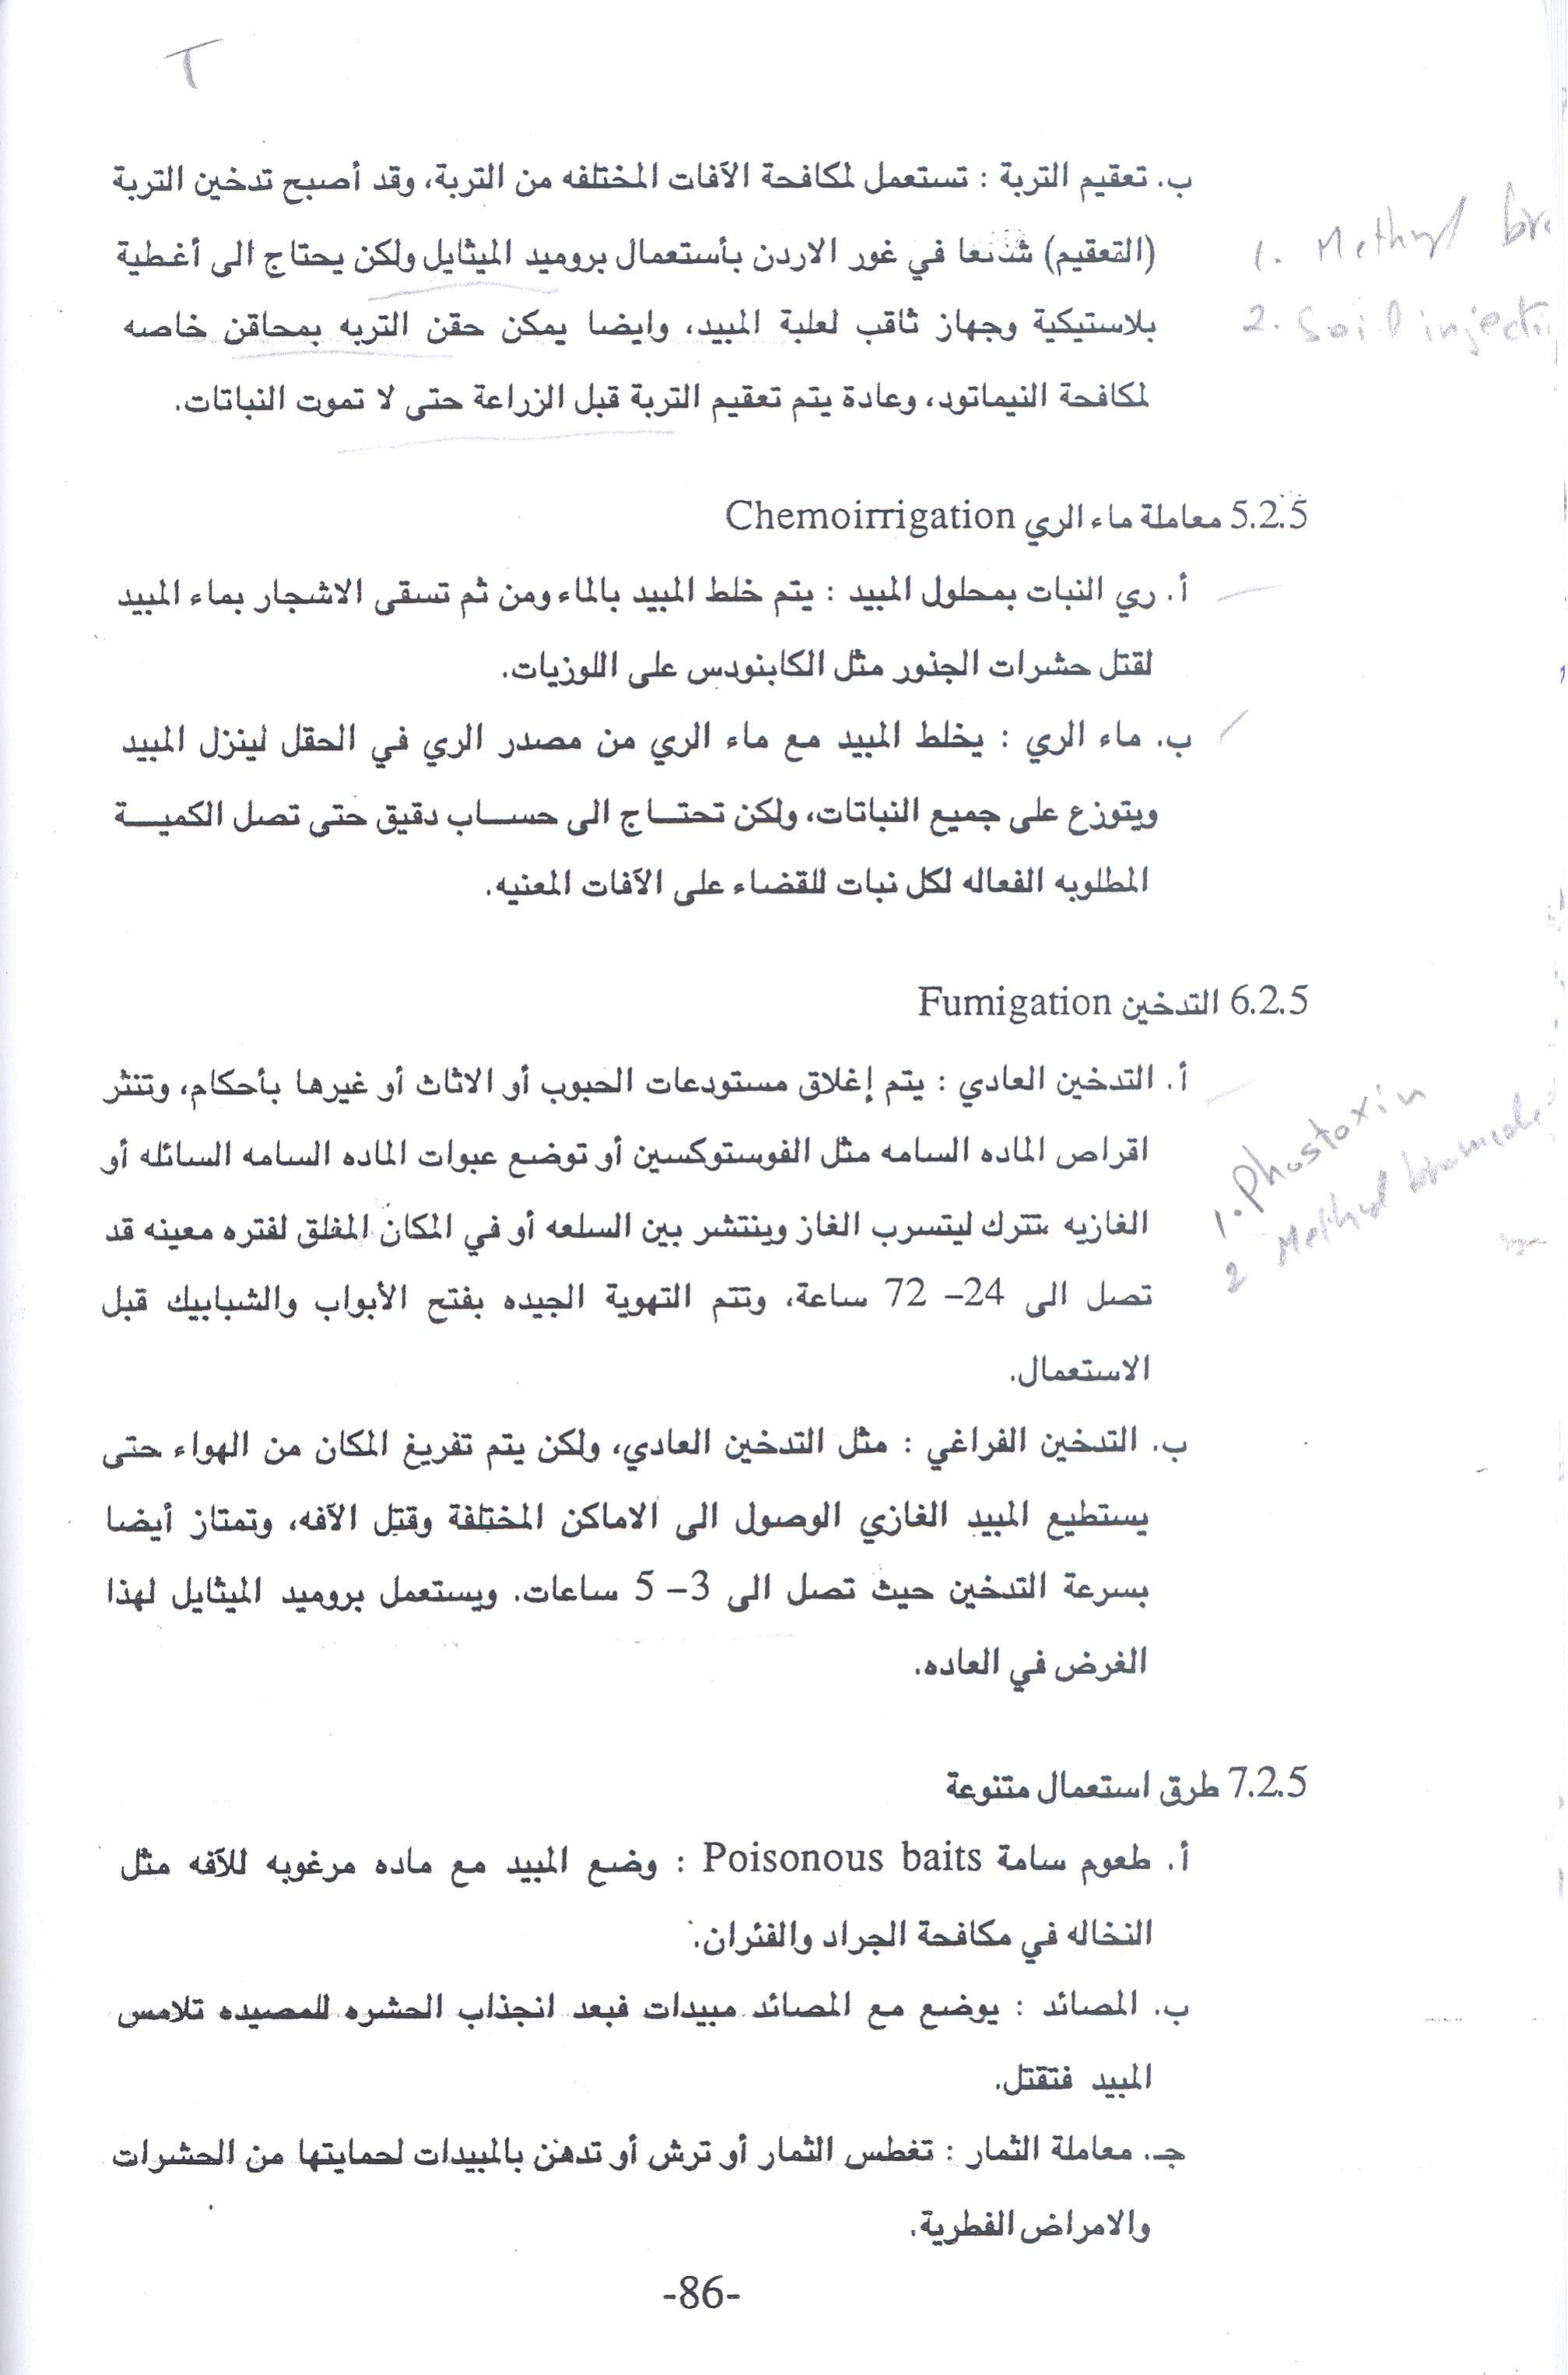 T
ب. تعقيم التربة : تستعمل لمكافحة الآفات المختلفه من التربة، وقد أصبح تدخين التربة
(التعقيم) شائعا في غور الاردن بأستعمال بروميد الميثايل ولكن يحتاج الى أغطية
1. Methyl bro
بلاستيكية وجهاز ثاقب لعلبة المبيد، وايضا يمكن حقن التربه بمحاقن خاصه
2. Soil injecti
لمكافحة النيماتود، وعادة يتم تعقيم التربة قبل الزراعة حتى لا تموت النباتات.
5.2.5 معاملة ماء الري Chemoirrigation
أ. ري النبات بمحلول المبيد : يتم خلط المبيد بالماء ومن ثم تسقى الاشجار بماء المبيد
لقتل حشرات الجذور مثل الكابنودس على اللوزيات.
ب. ماء الري : يخلط المبيد مع ماء الري من مصدر الري في الحقل لينزل المبيد
ويتوزع على جميع النباتات، ولكن تحتاج الى حساب دقيق حتى تصل الكمية
المطلوبه الفعاله لكل نبات للقضاء على الآفات المعنيه.
6.2.5 التدخين Fumigation
أ. التدخين العادي : يتم إغلاق مستودعات الحبوب أو الاثاث أو غيرها بأحكام، وتنثر
اقراص الماده السامه مثل الفوستوكسين أو توضع عبوات الماده السامه السائله أو
1. Phostoxin
الغازيه تترك ليتسرب الغاز وينتشر بين السلعه أو في المكان المغلق لفتره معينه قد
2 Methyl bromide
تصل الى 24– 72 ساعة، وتتم التهوية الجيده بفتح الأبواب والشبابيك قبل
الاستعمال.
ب. التدخين الفراغي : مثل التدخين العادي، ولكن يتم تفريغ المكان من الهواء حتى
يستطيع المبيد الغازي الوصول الى الاماكن المختلفة وقتل الآفه، وتمتاز أيضا
بسرعة التدخين حيث تصل الى 3– 5 ساعات. ويستعمل بروميد الميثايل لهذا
الغرض في العاده.
7.2.5 طرق استعمال متنوعة
أ. طعوم سامة Poisonous baits : وضع المبيد مع ماده مرغوبه للآفه مثل
النخاله في مكافحة الجراد والفئران.
ب. المصائد : يوضع مع المصائد مبيدات فبعد انجذاب الحشره للمصيده تلامس
المبيد فتقتل.
جـ. معاملة الثمار : تغطس الثمار أو ترش أو تدهن بالمبيدات لحمايتها من الحشرات
والامراض الفطرية.
-86-